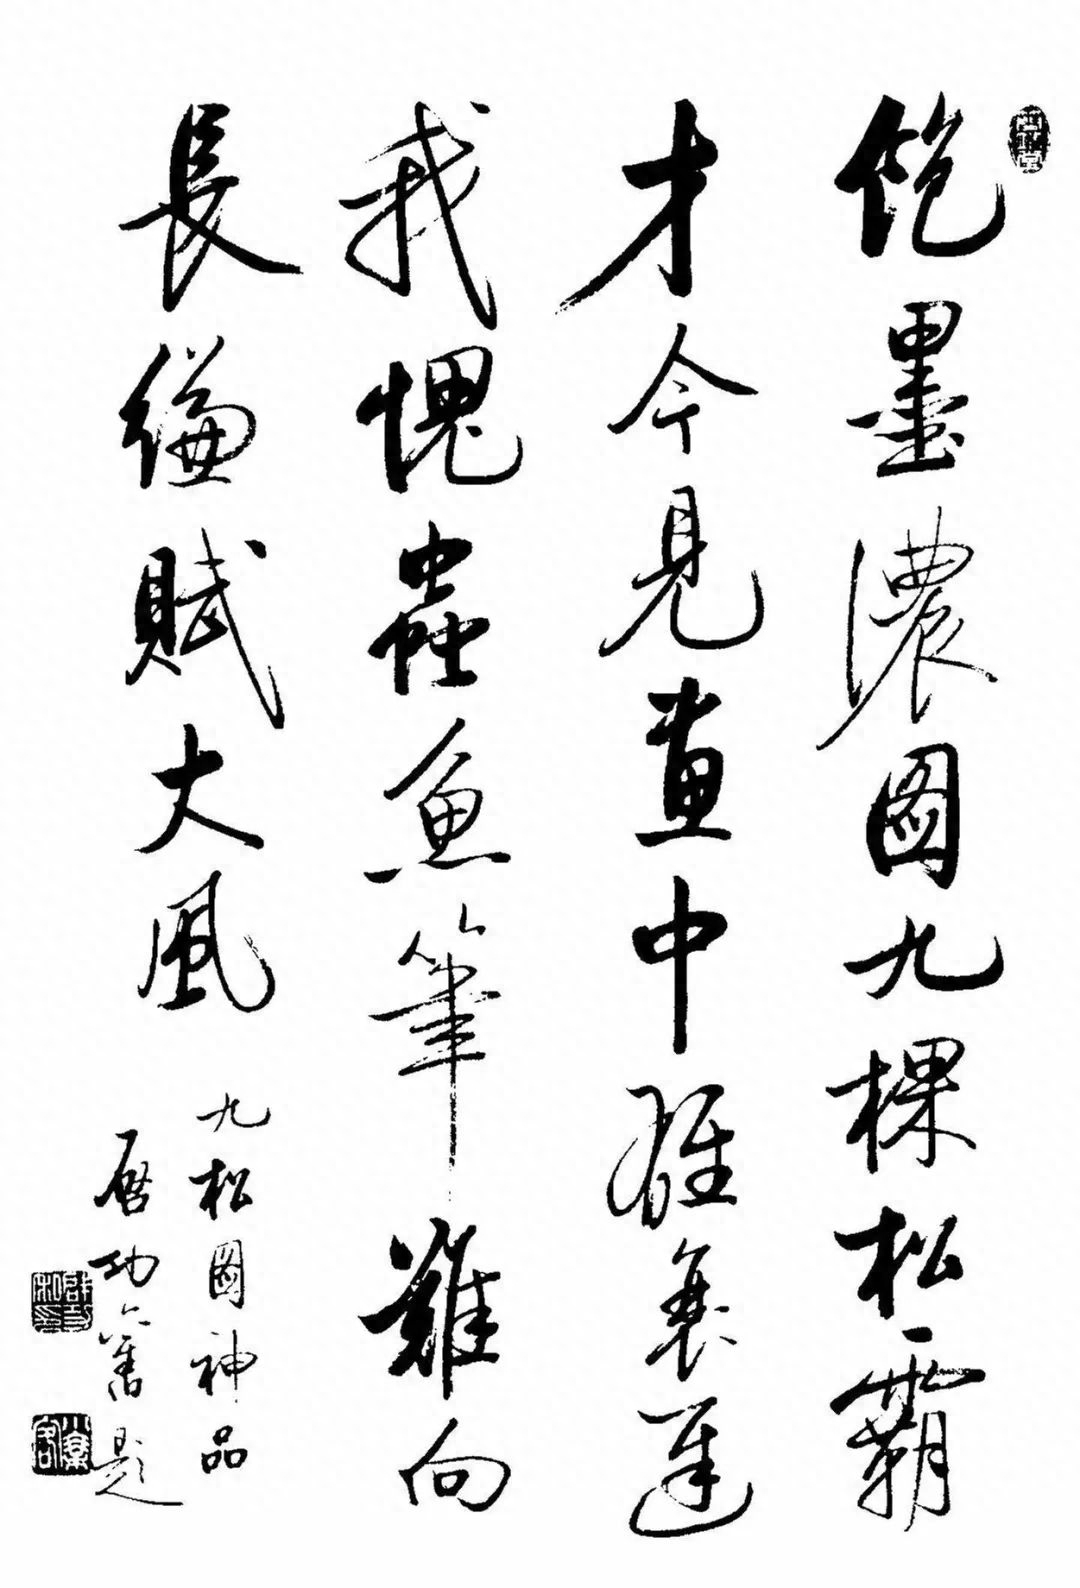 飽墨濃圖九棵松霸
才今見畫中雄衰遲
我愧蟲魚筆難向
長縑賦大風
九松圖神品
啟功舊題